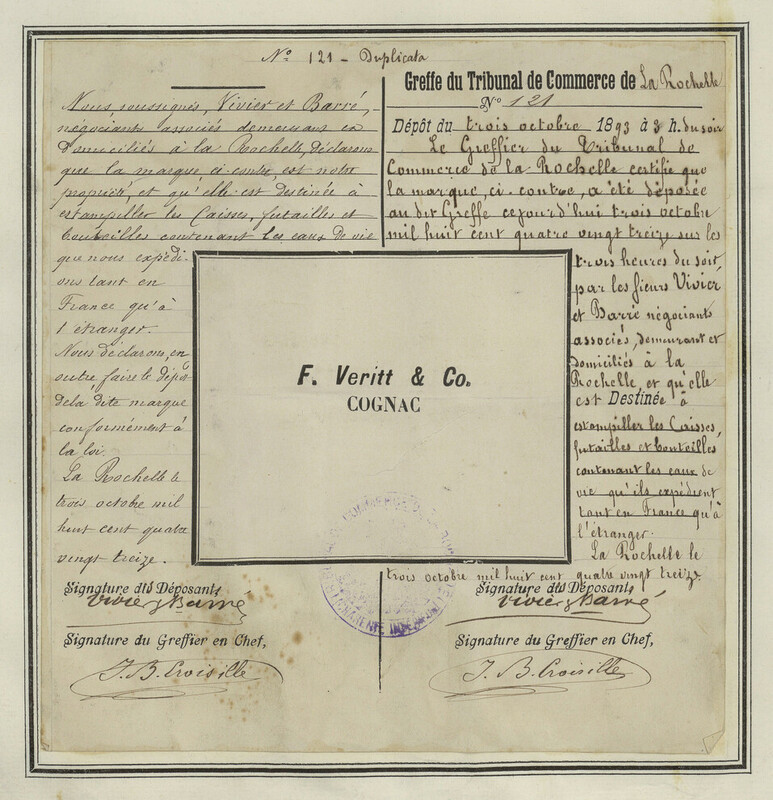 No 121 - Duplicata
Nous, soussignés, Vivier et Barré,
négociants associés demeurant et
Domiciliés à la Rochelle, déclarons
que la marque, ci-contre, est notre
propriété, et qu'elle est destinée à
estampiller les Caisses, futailles et
bouteilles contenant les eaux de vie
que nous expédi-
ons tant en
France qu'à
l'étranger.
Nous déclarons, en
outre, faire le dépôt
de la dite marque
conformément à
la loi.
La Rochelle le
trois octobre mil
huit cent quatre
vingt treize.
Signature des Déposants
Vivier & Barré
Signature du Greffier en Chef,
J. B. Croisille
Greffe du Tribunal de Commerce de La Rochelle
No 121
Dépôt du trois octobre 1893 à 3 h. du soir
Le Greffier du Tribunal de
Commerce de la Rochelle certifie que
la marque, ci-contre, a été déposée
au dit Greffe cejourd'hui trois octobre
mil huit cent quatre vingt treize sur les
trois heures du soir
par les sieurs Vivier
et Barré négociants
associés, demeurant et
domiciliés à la
Rochelle, et qu'elle
est Destinée à
estampiller les Caisses,
futailles et bouteilles
contenant les eaux de
vie qu'ils expédient
tant en France qu'à
l'étranger.
La Rochelle le
trois octobre mil huit cent quatre vingt treize
Signature des Déposants
Vivier & Barré
Signature du Greffier en Chef,
J. B. Croisille
F. Veritt & Co.
COGNAC